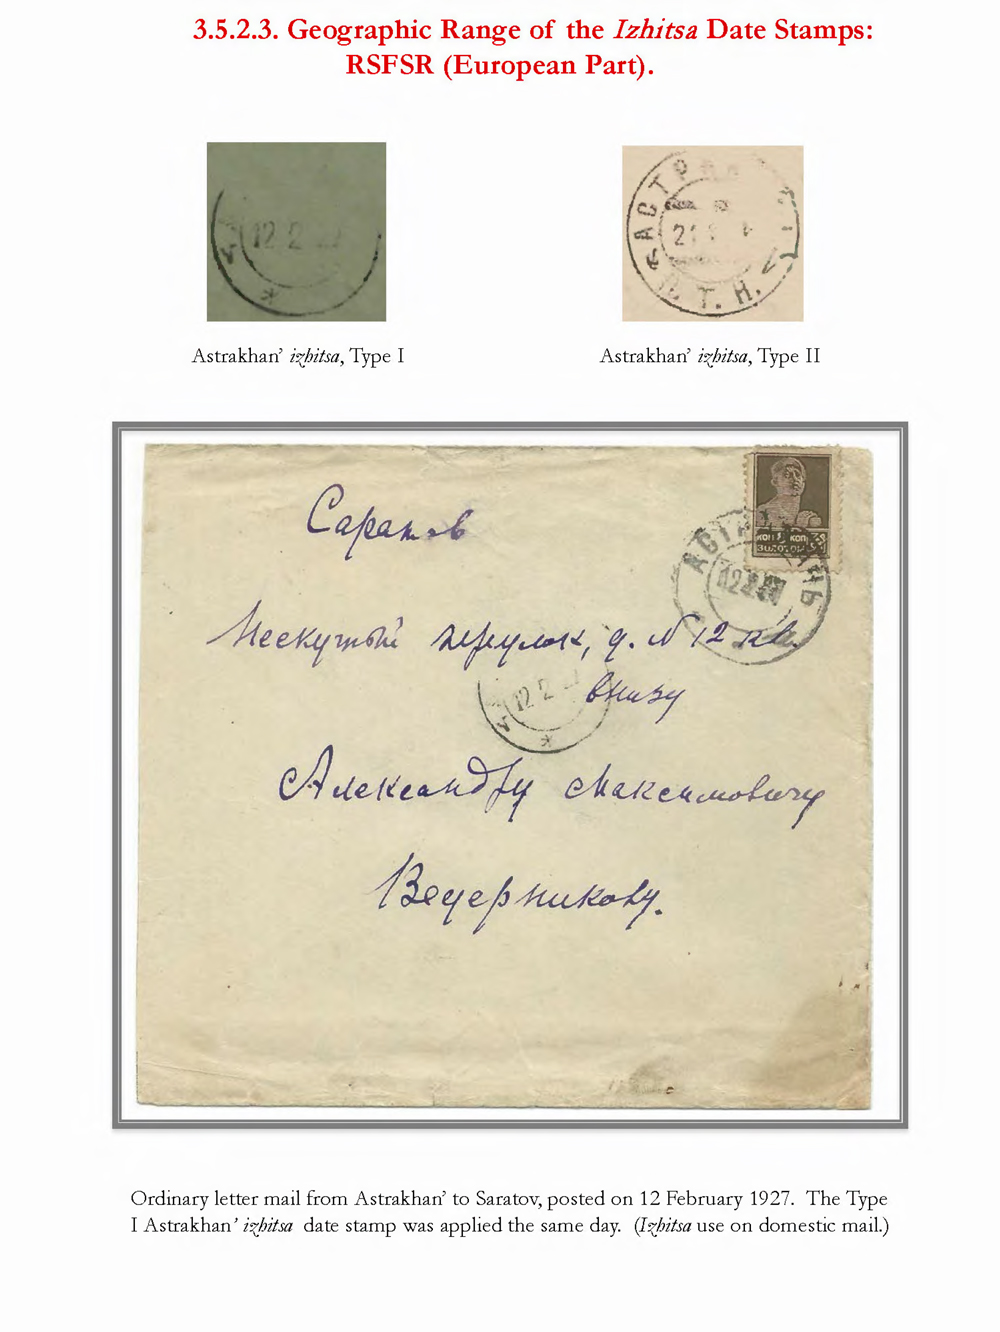 3.5.2.3. Geographic Range of the Izhitsa Date Stamps:
RSFSR (European Part).
12 2 27
АСТРАХ
21
П. Т. Н.
Astrakhan' izhitsa, Type I
Astrakhan' izhitsa, Type II
Саратов
КОП КОП
ЗОЛОТОМ
АСТРАХАНЬ
12 2 27
Нескучный переулок, д. N 12 кв.
внизу
12 2
Александру Максимовичу
Ведерникову.
Ordinary letter mail from Astrakhan' to Saratov, posted on 12 February 1927. The Type
I Astrakhan' izhitsa date stamp was applied the same day. (Izhitsa use on domestic mail.)